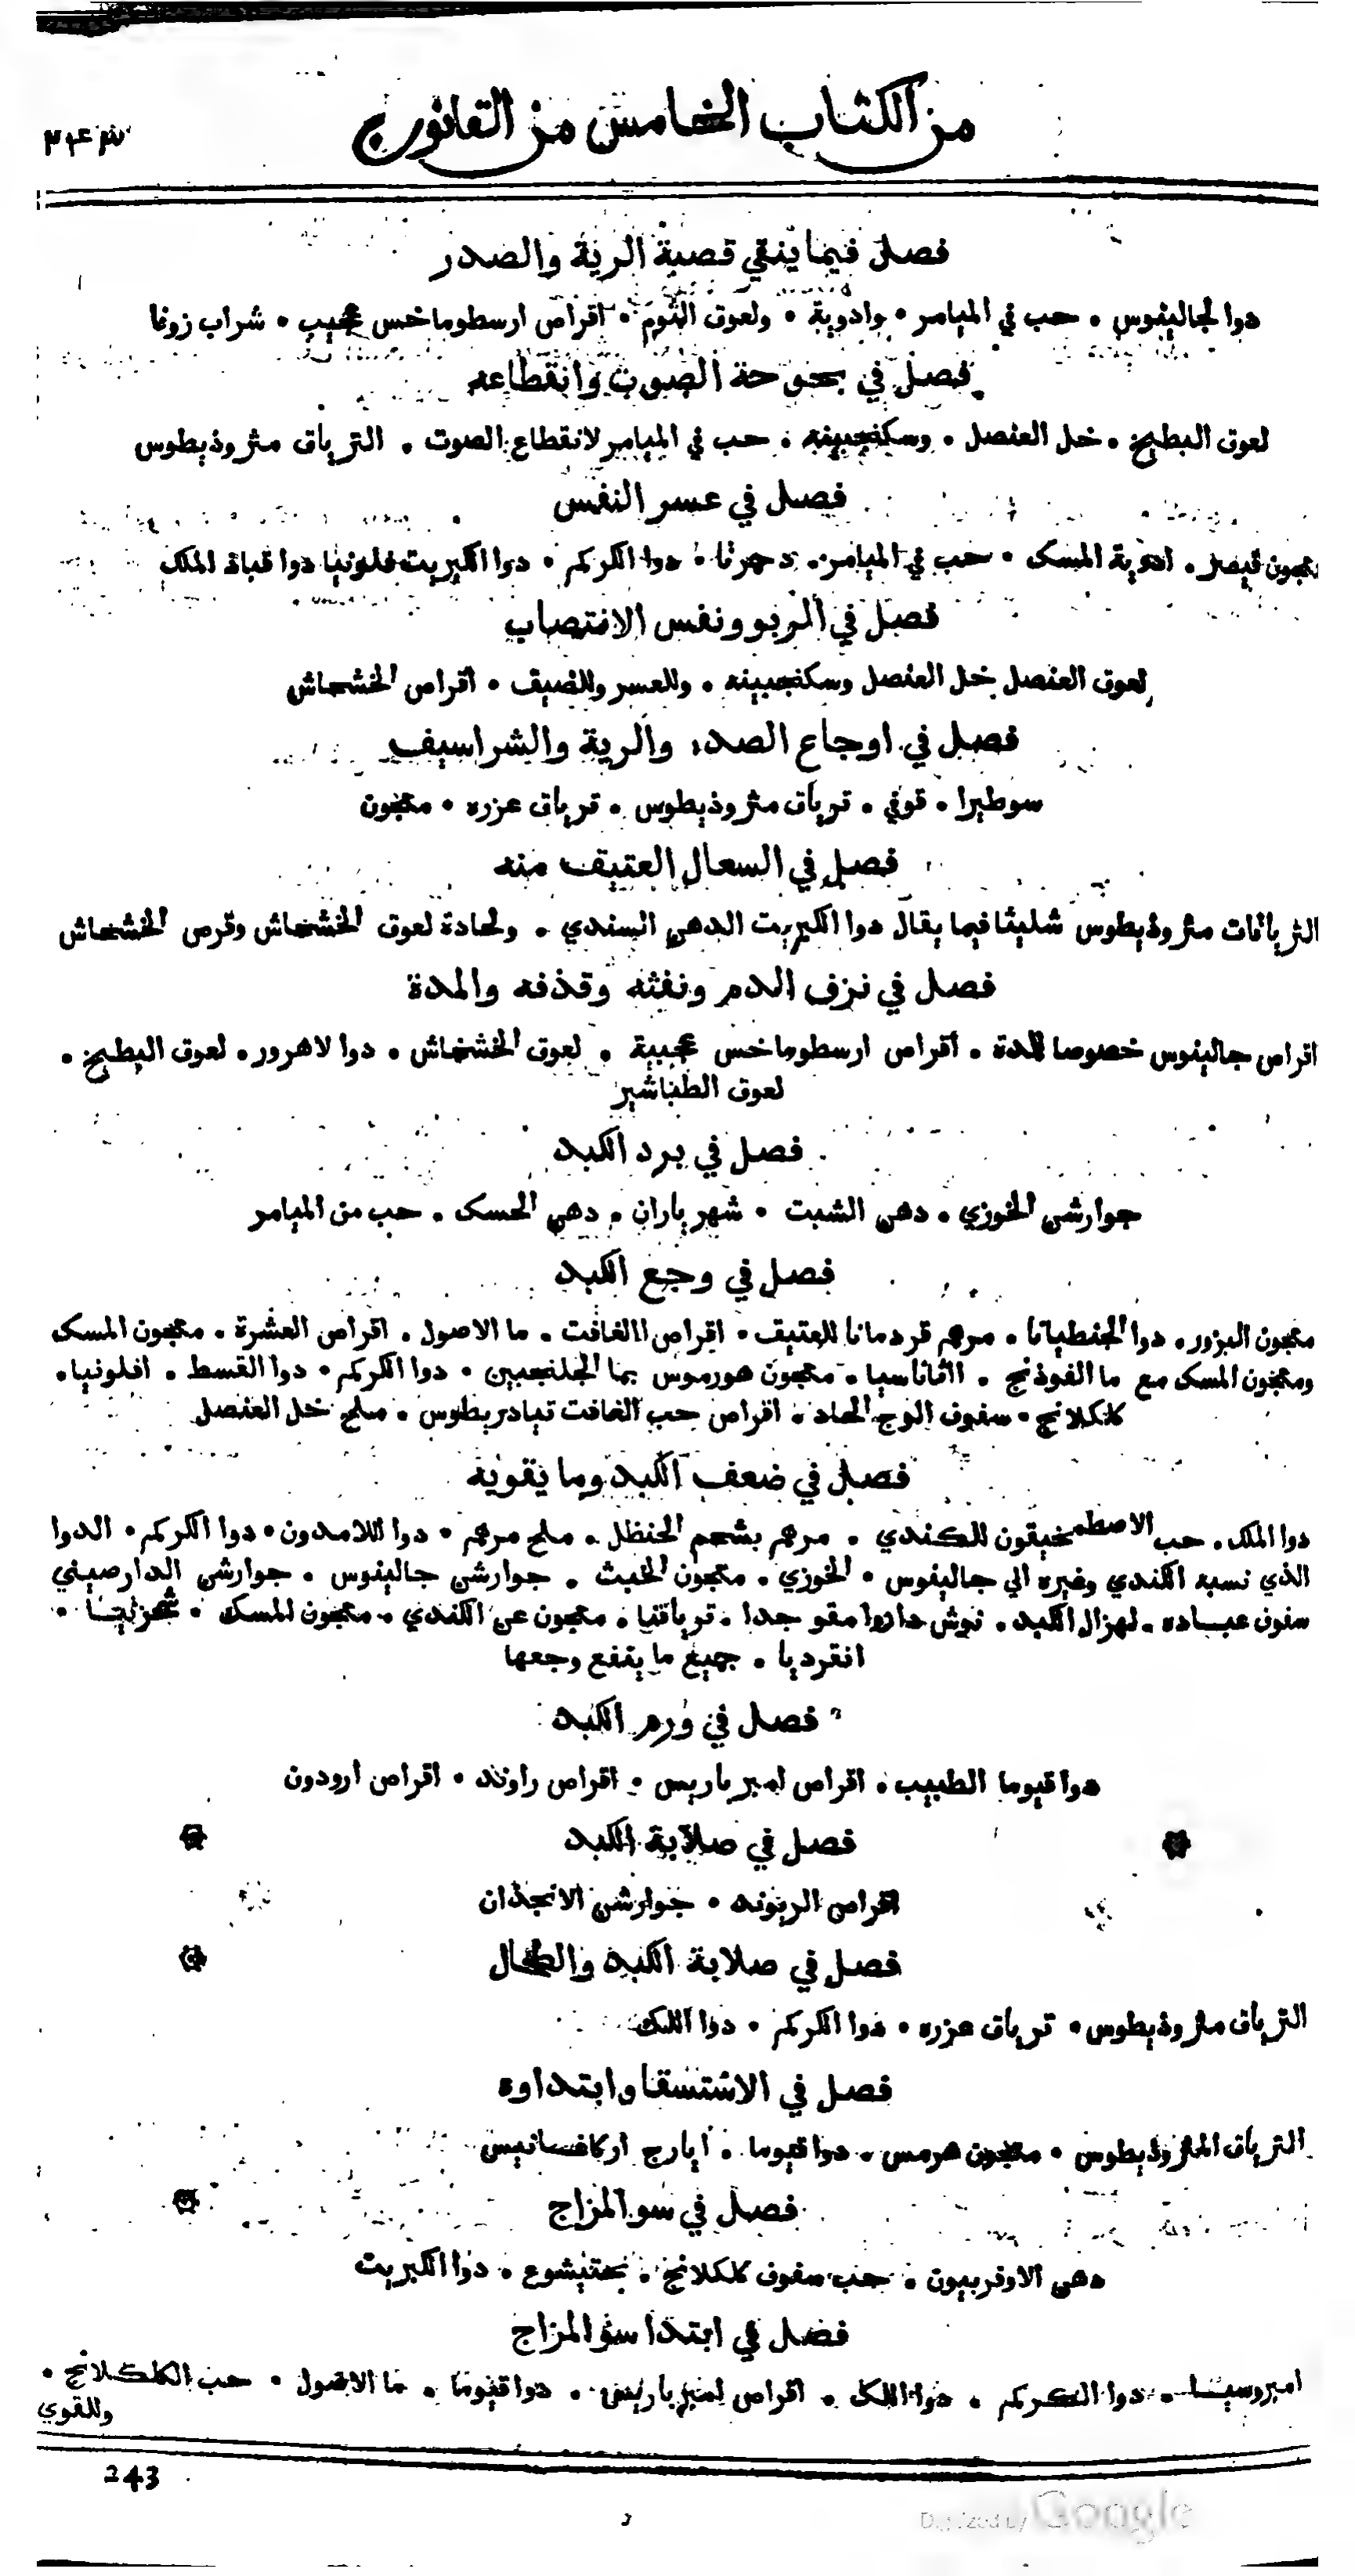 من الكتاب الخامس من القانون
٢٤٣
فصل فيما ينقي قصبة الرية والصدر
دوا لجالينوس • حب في الميامر • وادوية • ولعوق الثوم • اقراص ارسطوماخس عجيب • شراب زوفا
فصل في بحوحة الصوت وانقطاعه
لعوق البطيخ • خل العنصل • وسكنجبينه • حب في الميامر لانقطاع الصوت • الترياق مثروذيطوس
فصل في عسر النفس
معجون قيصر • ادوية المسك • حب في الميامر • دحرثا • دوا الكركم • دوا الكبريت فلونيا دوا قباد الملك
فصل في الربو ونفس الانتصاب
لعوق العنصل خل العنصل وسكنجبينه • وللعسر وللضيق • اقراص الخشخاش
فصل في اوجاع الصدر والرية والشراسيف
سوطيرا • قوفي • ترياق مثروذيطوس • ترياق عزره • معجون
فصل في السعال العتيق منه
الترياقات مثروذيطوس شليثا فيما يقال دوا الكبريت الدهن السندي • ولحادة لعوق الخشخاش وقرص الخشخاش
فصل في نزف الدم ونفثه وقذفه والمدة
اقراص جالينوس خصوصا للمدة • اقراص ارسطوماخس عجيبة • لعوق الخشخاش • دوا لاهرور • لعوق البطيخ •
لعوق الطباشير
فصل في برد الكبد
جوارشن الخوزي • دهن الشبت • شهرياران • دهن الحسك • حب من الميامر
فصل في وجع الكبد
معجون البزور • دوا الجنطيانا • مرهم قردمانا للعتيق • اقراص الغافت • ما الاصول • اقراص العشرة • معجون المسك
ومعجون المسك مع ما الفوذنج • اثاناسيا • معجون هورموس بما الجلنجبين • دوا الكركم • دوا القسط • افلونيا •
كلكلانج • سفوف الوج الحاد • اقراص حب الغافت تيادريطوس • ملح خل العنصل
فصل في ضعف الكبد وما يقويه
دوا الملك • حب الاصطمخيقون للكندي • مرهم بشحم الحنظل • ملح مرهم • دوا اللامدون • دوا الكركم • الدوا
الذي نسبه الكندي وغيره الي جالينوس • الخوزي • معجون الخبث • جوارشن جالينوس • جوارشن الدارصيني
سفوف عباده • لهزال الكبد • نوش داروا مقو جدا • ترياقنا • معجون عن الكندي • معجون المسك • شجزنيا •
انقرديا • جميع ما ينفع وجعها
فصل في ورم الكبد
دوا قيوما الطبيب • اقراص امبرباريس • اقراص راوند • اقراص ارودون
فصل في صلابة الكبد
اقراص الريوند • جوارشن الانجذان
فصل في صلابة الكبد والطحال
الترياق مثروذيطوس • ترياق عزره • دوا الكركم • دوا اللك
فصل في الاستسقا وابتداوه
الترياق المثروذيطوس • معجون هرمس • دوا قيوما • ايارج اركافسانيس
فصل في سو المزاج
دهن الاوفربيون • حب سفوف كلكلانج • بختيشوع • دوا الكبريت
فصل في ابتدا سو المزاج
امبروسيا • دوا الكركم • دوا اللك • اقراص امبرباريس • دوا قيوما • ما الاصول • حب الكلكلانج •
وللقوي
243
Digitized by Google